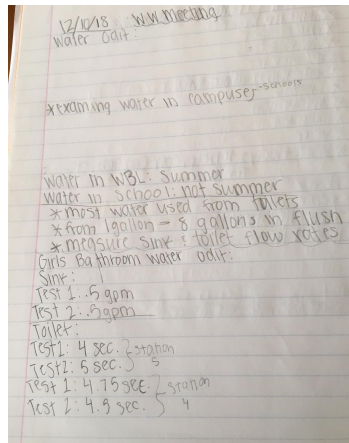 12/10/18 W.W. Meeting
Water Odit:
*examing water in campuses -schools
Water in WBL: Summer
Water in School: not summer
*most water used from toilets
*from 1gallon - 8 gallons in flush
*measure sink & toilet flow rates
Girls Bathroom water odit:
Sink:
Test 1: .5 gpm
Test 2: .5gpm
Toilet:
Test1: 4 sec. } station
Test2: 5 sec. } 5
Test 1: 4.75 sec. } station
Test 2: 4.5 sec. } 4